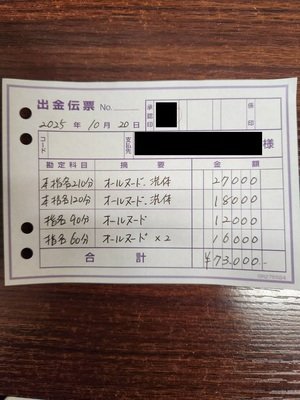 出金伝票 No.
承認印 係印
2025年10月20日
コード 支払先 様
勘定科目 摘要 金額
本指名210分 オールヌード、洗体 27000
本指名120分 オールヌード、洗体 18000
指名90分 オールヌード 12000
指名60分 オールヌード×2 16000
合計 ¥73,000-